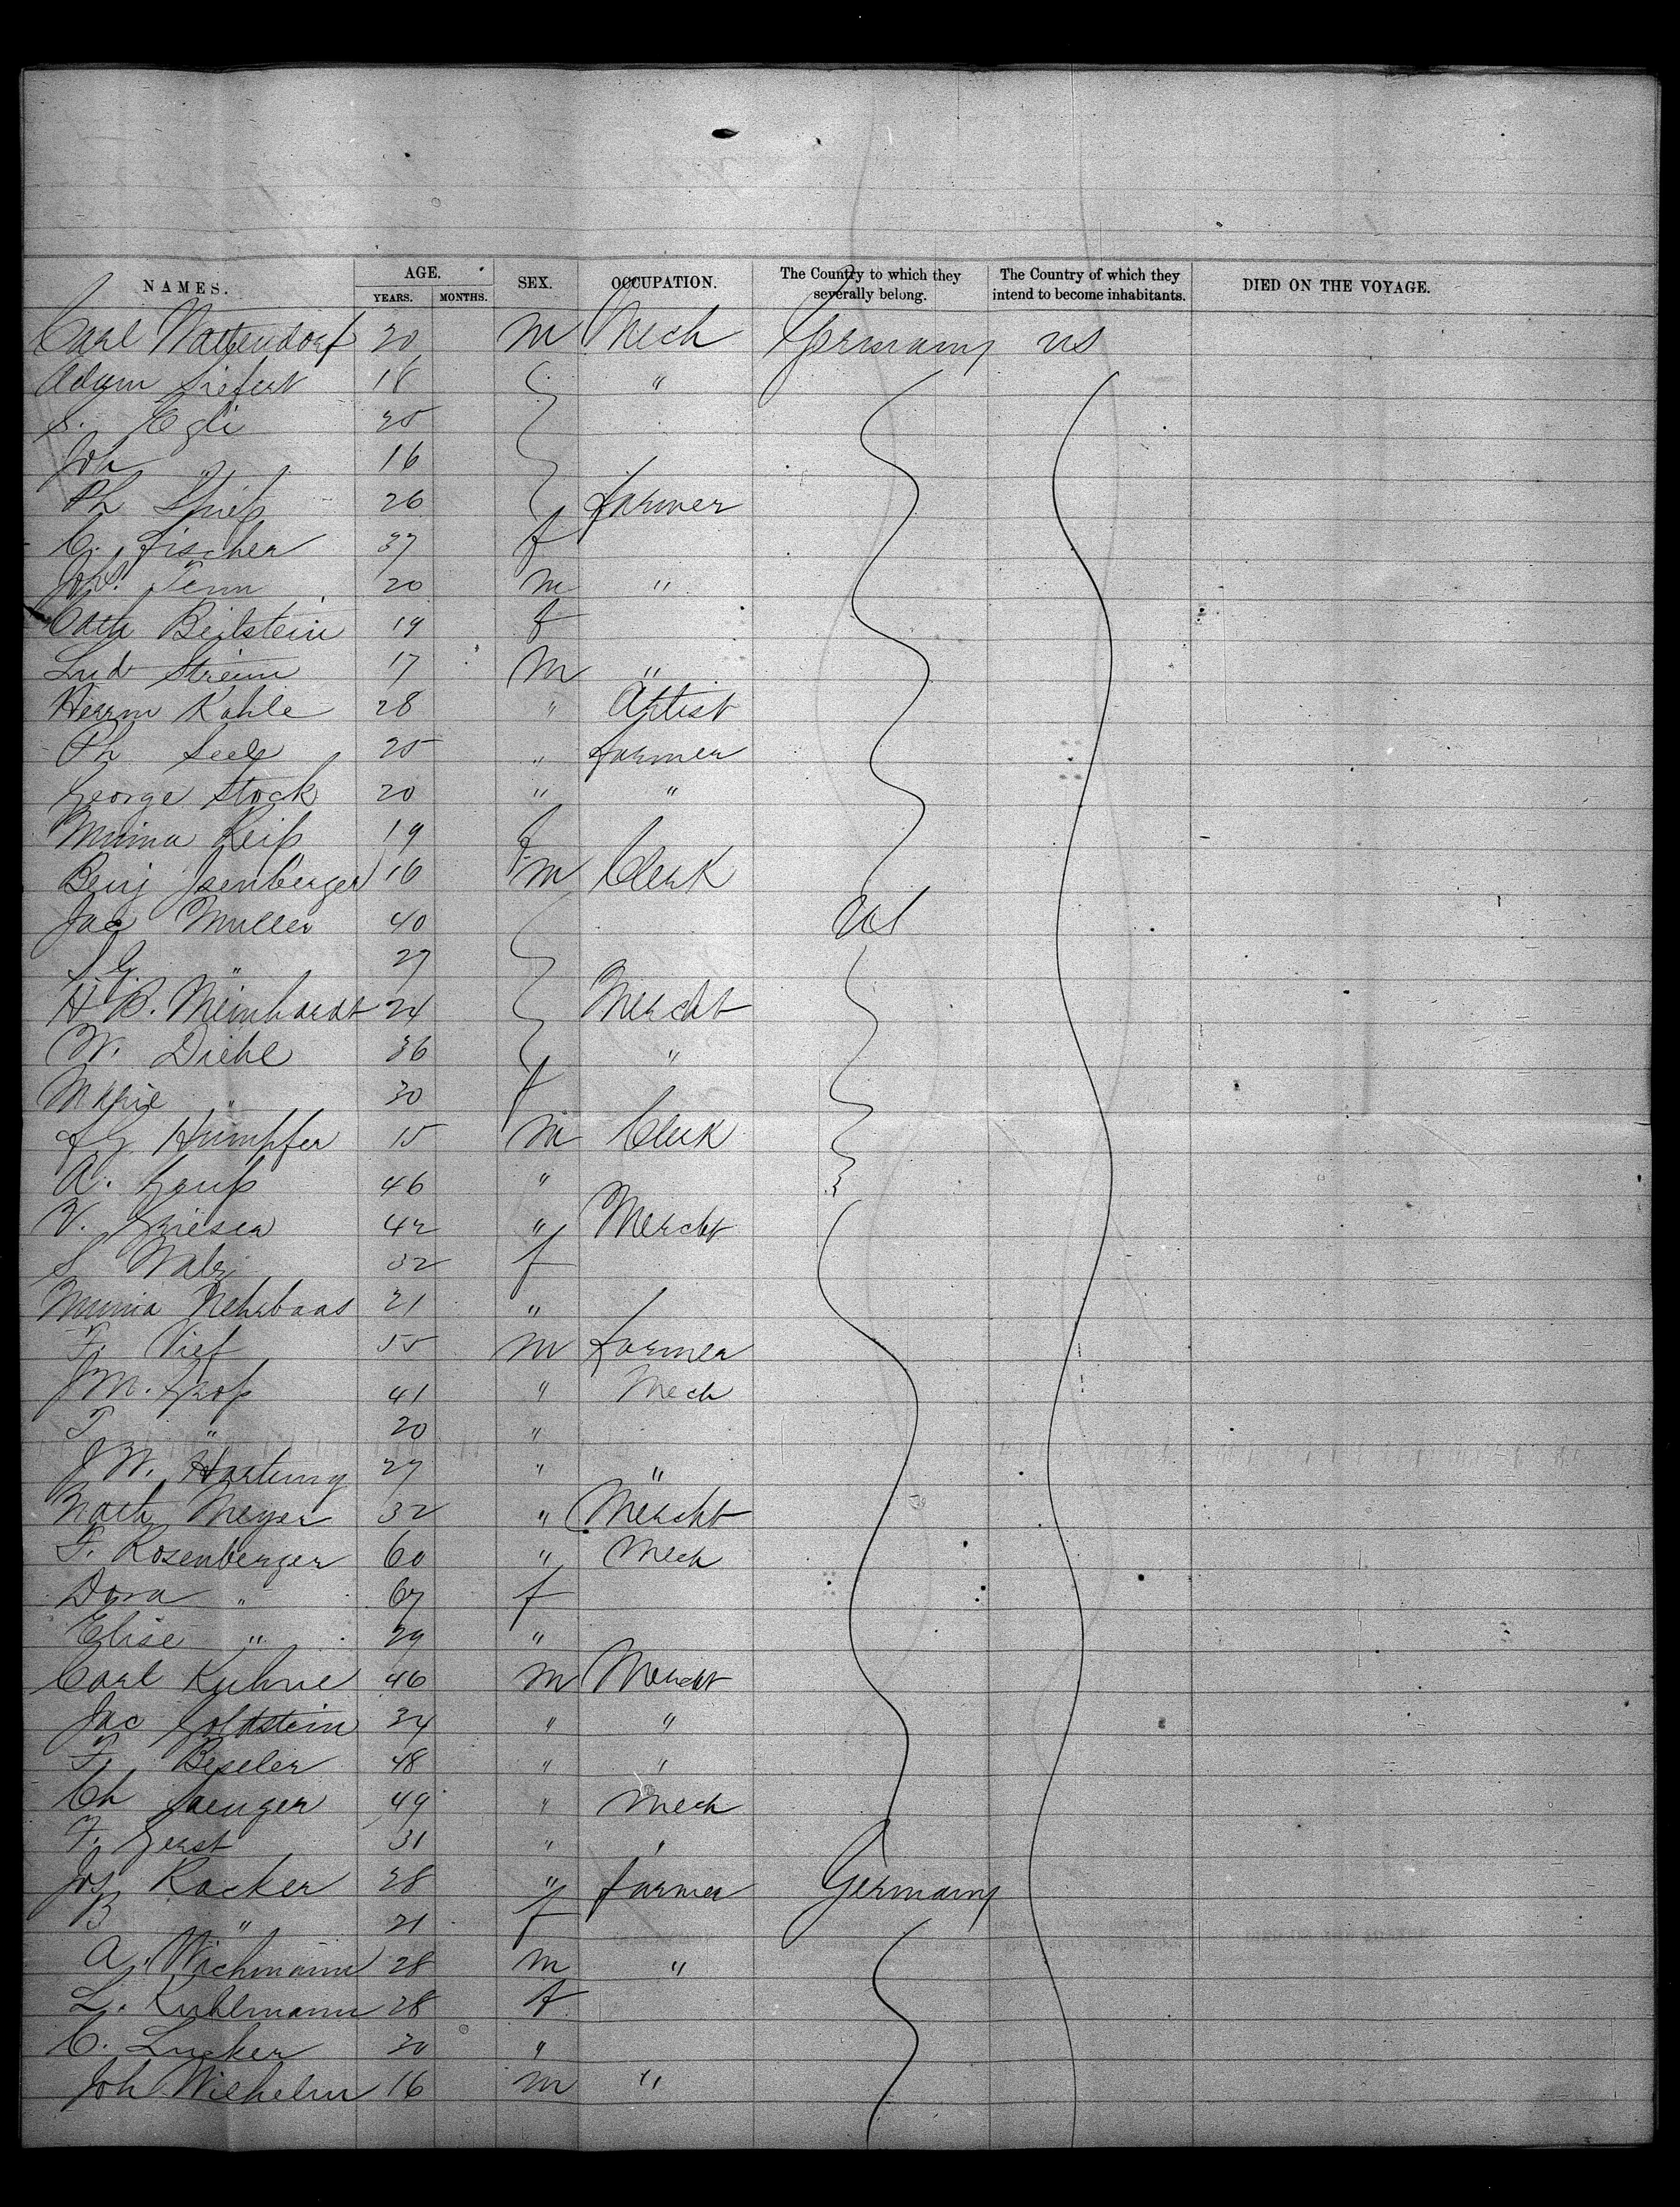 NAMES. AGE. YEARS. MONTHS. SEX. OCCUPATION. The Country to which they severally belong. The Country of which they intend to become inhabitants. DIED ON THE VOYAGE.
Carl Wattendorf 20 m Mech Germany us
Adam Siefert 18 "
S. Egli 25
Joh " 16
Ph Spieß 26 farmer
C. Fischer 37 f
Johs. Fenn 20 m "
Cath Beilstein 19 f
Lud Streim 17 m "
Herrm Kahle 28 " Artist
Ph Seel 25 " farmer
George Stock 20 " "
Minna Reiß 19 f
Benj Isenberger 16 m Clerk
Jac Muller 40 us
S G. " 27
H B. Meinhardt 24 Mercht
W. Diehl 36 "
Marie " 30 f
Humpfer 15 m Clerk
A. 46 "
V. Griesea 42 " Mercht
S 32 f
Minna Nehrbaas 21 "
F. Vief 55 m farmer
J M. Groß 41 " Mech
T " 20 "
J W. Hartung 27 " "
Nath Meyer 32 " Mercht
F. Rosenberger 60 " Mech
Dora " 67 f
Elise " 29 "
Carl Kuhne 46 m Mercht
Jac Goldstein 34 " "
F. Beseler 48 " "
Ch Saenger 49 " Mech
F. Gerst 31 " "
Jos Racker 28 " farmer Germany
B " 21 f
A. Wichmann 28 m "
L. Kuhlmann 28 f
C. Lucker 30 "
Joh Wilhelm 16 m "